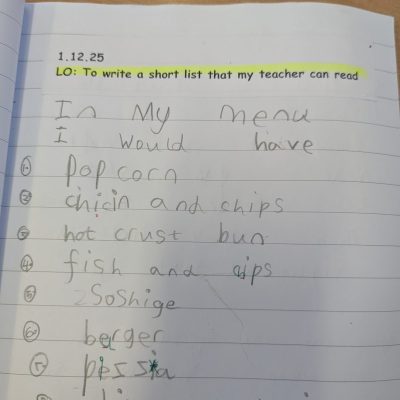 1.12.25
LO: To write a short list that my teacher can read
In My menu
I would have
1 pop corn
2 chicin and chips
3 hot crust bun
4 fish and cips
5 2 Soshige
6 berger
pessia